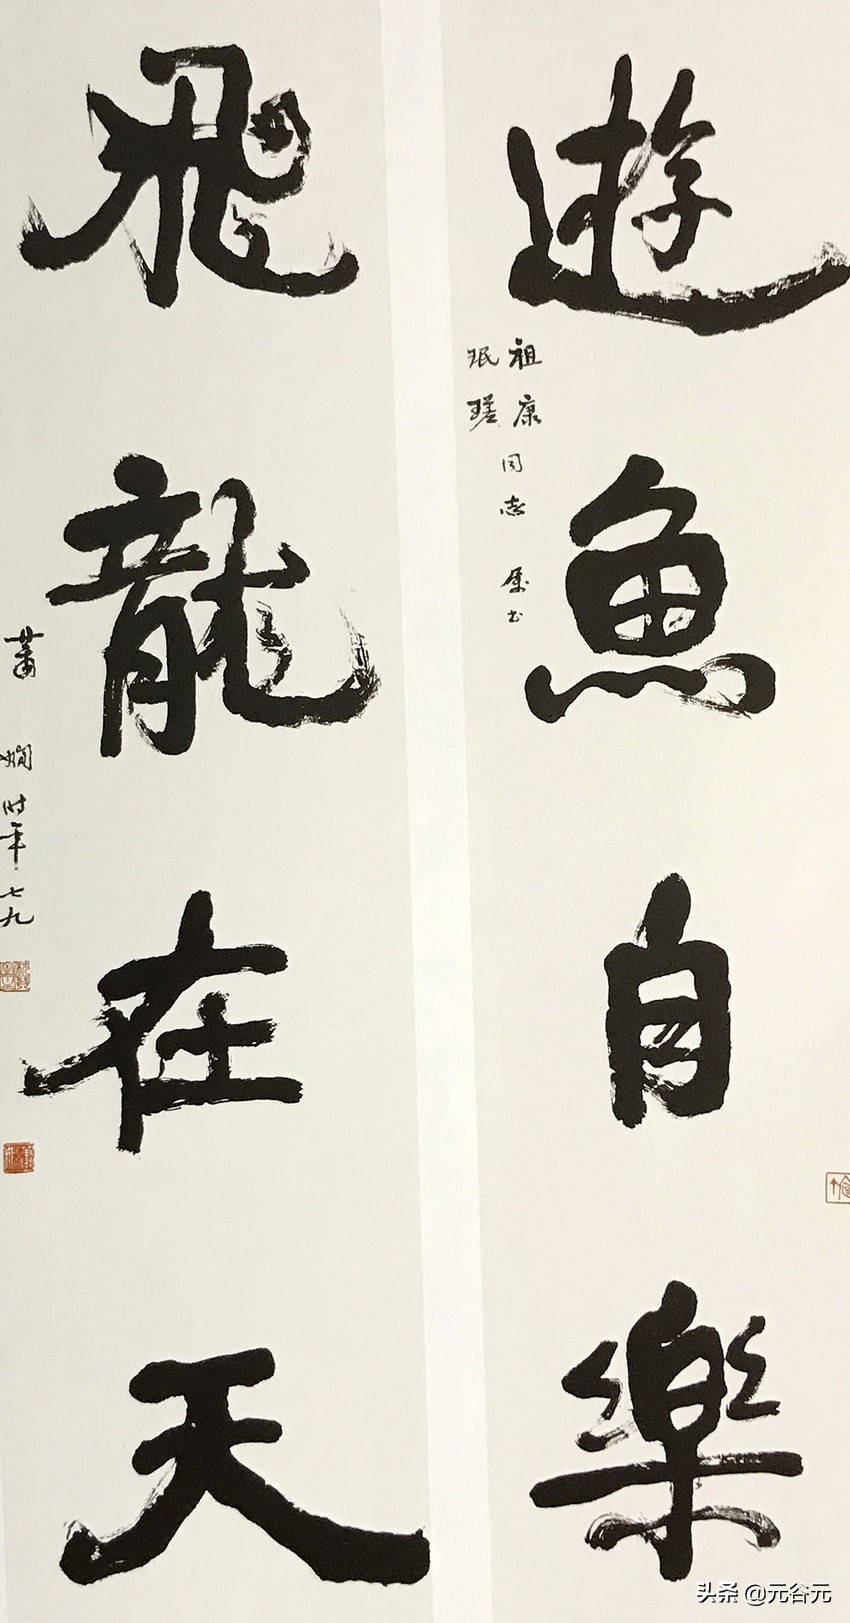 遊魚自樂
祖康
珉瑳
同志屬書
飛龍在天
蕭嫻時年七九
头条 @元谷元